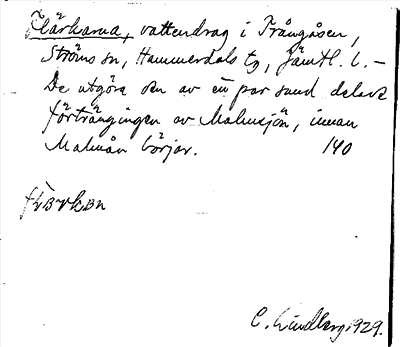 Flärkarna, vattendrag i Frångåsen,
Ströms sn, Hammerdals tg, Jämtl. l. –
De utgöra den av en par sund delade
förträngningen av Malmsjön, innan
Malmån börjar. 140
flärkən
C. Lindberg 1929.